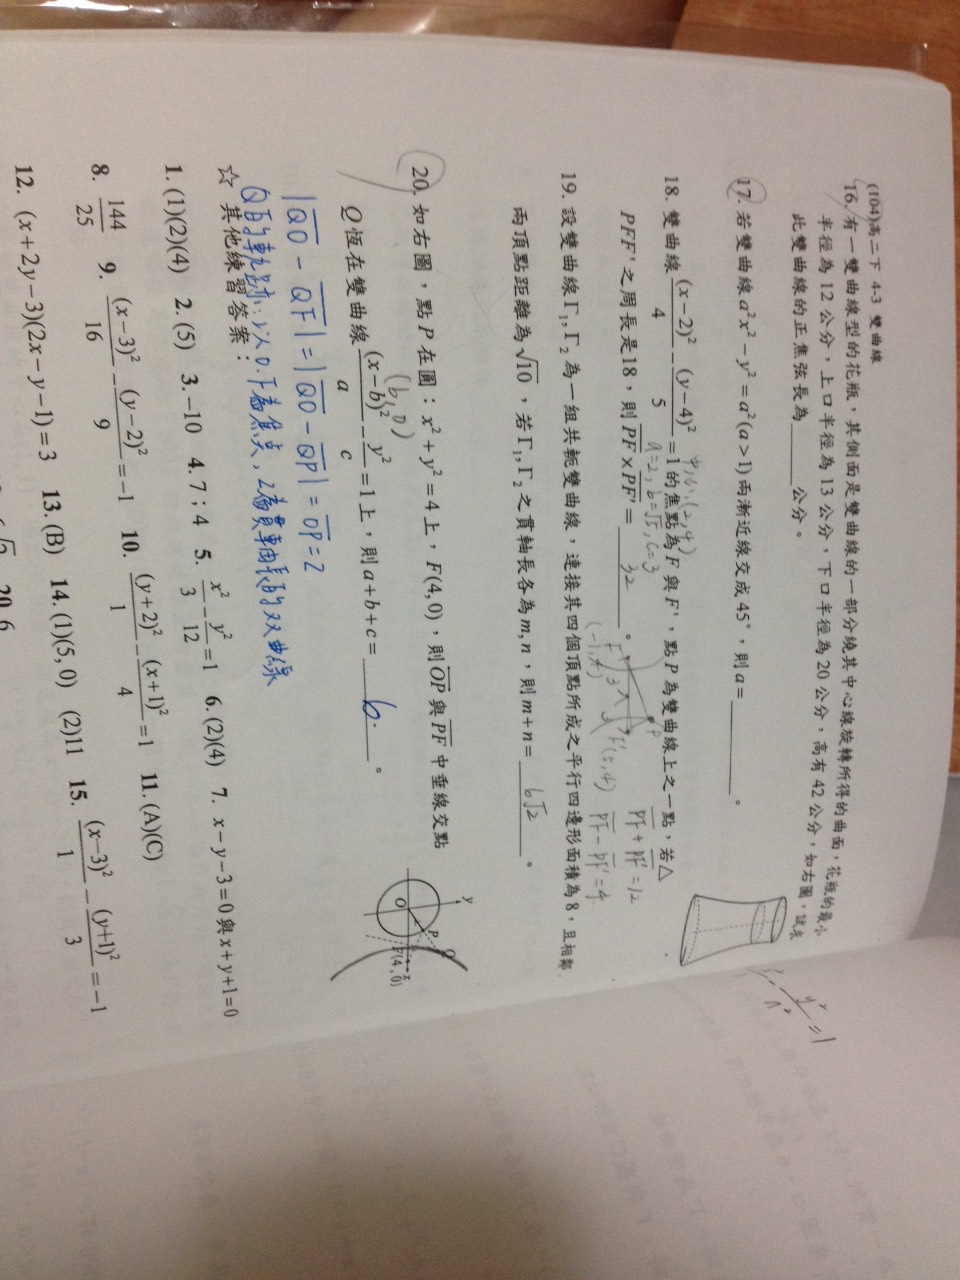 (104)高二下 4-3 雙曲線
16. 有一雙曲線型的花瓶，其側面是雙曲線的一部分繞其中心線旋轉所得的曲面，花瓶的最小
半徑為 12 公分，上口半徑為 13 公分，下口半徑為 20 公分，高有 42 公分，如右圖，試求
此雙曲線的正焦弦長為______公分。
17. 若雙曲線 a²x² − y² = a² (a > 1) 兩漸近線交成 45°，則 a = ______。
中心:(2,4)
18. 雙曲線 (x−2)²/4 − (y−4)²/5 = 1 的焦點為 F 與 F'，點 P 為雙曲線上之一點，若△
a=2, b=√5, c=3
PFF' 之周長是 18，則 PF × PF' = 32 。
PF + PF' = 12
PF − PF' = 4
F
(-1,4)
3
3
F'(5,4)
P
19. 設雙曲線 Γ₁, Γ₂ 為一組共軛雙曲線，連接其四個頂點所成之平行四邊形面積為 8，且相鄰
兩頂點距離為 √10，若 Γ₁, Γ₂ 之貫軸長各為 m, n，則 m + n = 6√2 。
20. 如右圖，點 P 在圓：x² + y² = 4 上，F(4, 0)，則 OP 與 PF 中垂線交點
(b,0)
Q 恆在雙曲線 (x−b)²/a − y²/c = 1 上，則 a + b + c = 6. 。
y
O
P
Q
x
F(4, 0)
|QO − QF| = |QO − QP| = OP = 2
Q的軌跡:以O.F為焦點，2為貫軸長的双曲線
☆ 其他練習答案：
1. (1)(2)(4) 2. (5) 3. −10 4. 7；4 5. x²/3 − y²/12 = 1 6. (2)(4) 7. x − y − 3 = 0 與 x + y + 1 = 0
8. 144/25 9. (x−3)²/16 − (y−2)²/9 = −1 10. (y+2)²/1 − (x+1)²/4 = 1 11. (A)(C)
12. (x + 2y − 3)(2x − y − 1) = 3 13. (B) 14. (1)(5, 0) (2)11 15. (x−3)²/1 − (y+1)²/3 = −1
20. 6